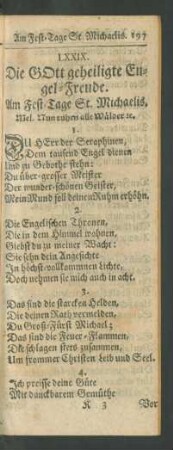 Am Fest-Tage St. Michaelis. 197
LXXIX.
Die GOtt geheiligte En-
gel-Freude.
Am Fest-Tage St. Michaelis,
Mel. Nun ruhen alle Wälder ꝛc.
1.
DU HErr der Seraphinen,
Dem tausend Engel dienen
Und zu Gebothe stehn:
Du über-grosser Meister
Der wunder-schönen Geister,
Mein Mund soll deinen Ruhm erhöhn.
2.
Die Engelischen Thronen,
Die in dem Himmel wohnen,
Giebst du zu meiner Wacht:
Sie sehn dein Angesichte
In höchst-vollkommnen Lichte,
Doch nehmen sie mich auch in acht.
3.
Das sind die starcken Helden,
Die deinen Rath vermelden,
Du Groß-Fürst Michael;
Das sind die Feuer-Flammen,
Die schlagen stets zusammen,
Um frommer Christen Leib und Seel.
4.
Ich preisse deine Güte
Mit danckbarem Gemüthe
K 3 Vor